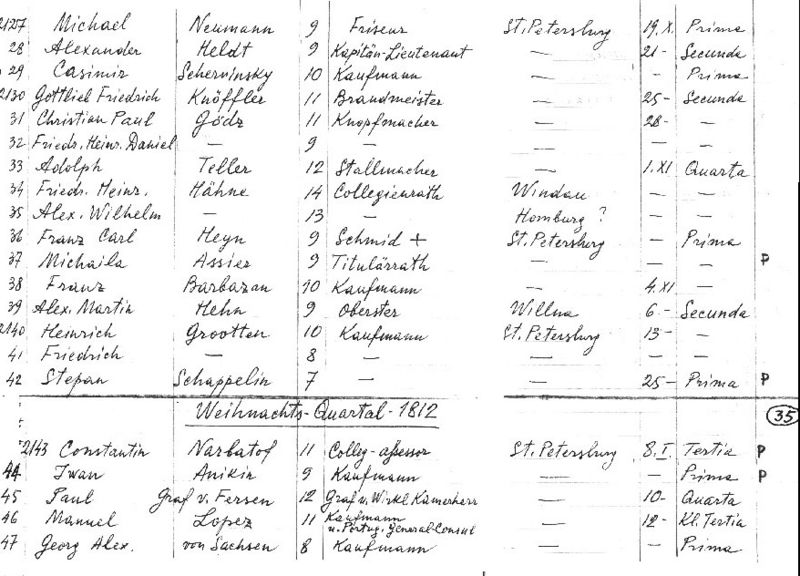 2127 Michael Neumann 9 Friseur St. Petersburg 19. X. Prima
28 Alexander Heldt 9 Kapitän-Lieutenant — 21 - Secunda
29 Casimir Scherwinsky 10 Kaufmann — - Prima
2130 Gottlieb Friedrich Knöffler 11 Brandmeister — 25 - Secunda
31 Christian Paul Gödz 11 Knopfmacher — 28 - —
32 Friedr. Heinr. Daniel — 9 — — - —
33 Adolph Teller 12 Stallmacher — 1. XI Quarta
34 Friedr. Heinr. Hähne 14 Collegienrath Windau — —
35 Alex. Wilhelm — 13 — Homburg ? — —
36 Franz Carl Heyn 9 Schmid + St. Petersburg — Prima
37 Michaila Assier 9 Titulärrath — — — P
38 Franz Barbazan 10 Kaufmann — 4. XI —
39 Alex. Martin Hehn 9 Oberster Willna 6 - Secunda
2140 Heinrich Grootten 10 Kaufmann St. Petersburg 13 - —
41 Friedrich — 8 — — — —
42 Stepan Schappelin 7 — — 25 - Prima P
Weihnachts-Quartal-1812 35
2143 Constantin Narbatof 11 Colleg-assessor St. Petersburg 8. I. Tertia P
44 Iwan Anikin 9 Kaufmann — — Prima P
45 Paul Graf v. Fersen 12 Graf u. Wirkl. Kamerherr — 10 - Quarta
46 Manuel Lopez 11 Kaufmann u. Portug. General-Consul — 12 - Kl. Tertia
47 Georg Alex. von Sachsen 8 Kaufmann — - Prima